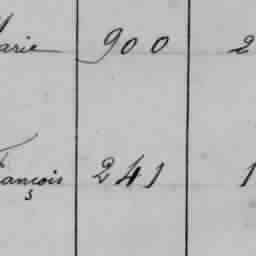 Marie 900 2
François 241 1